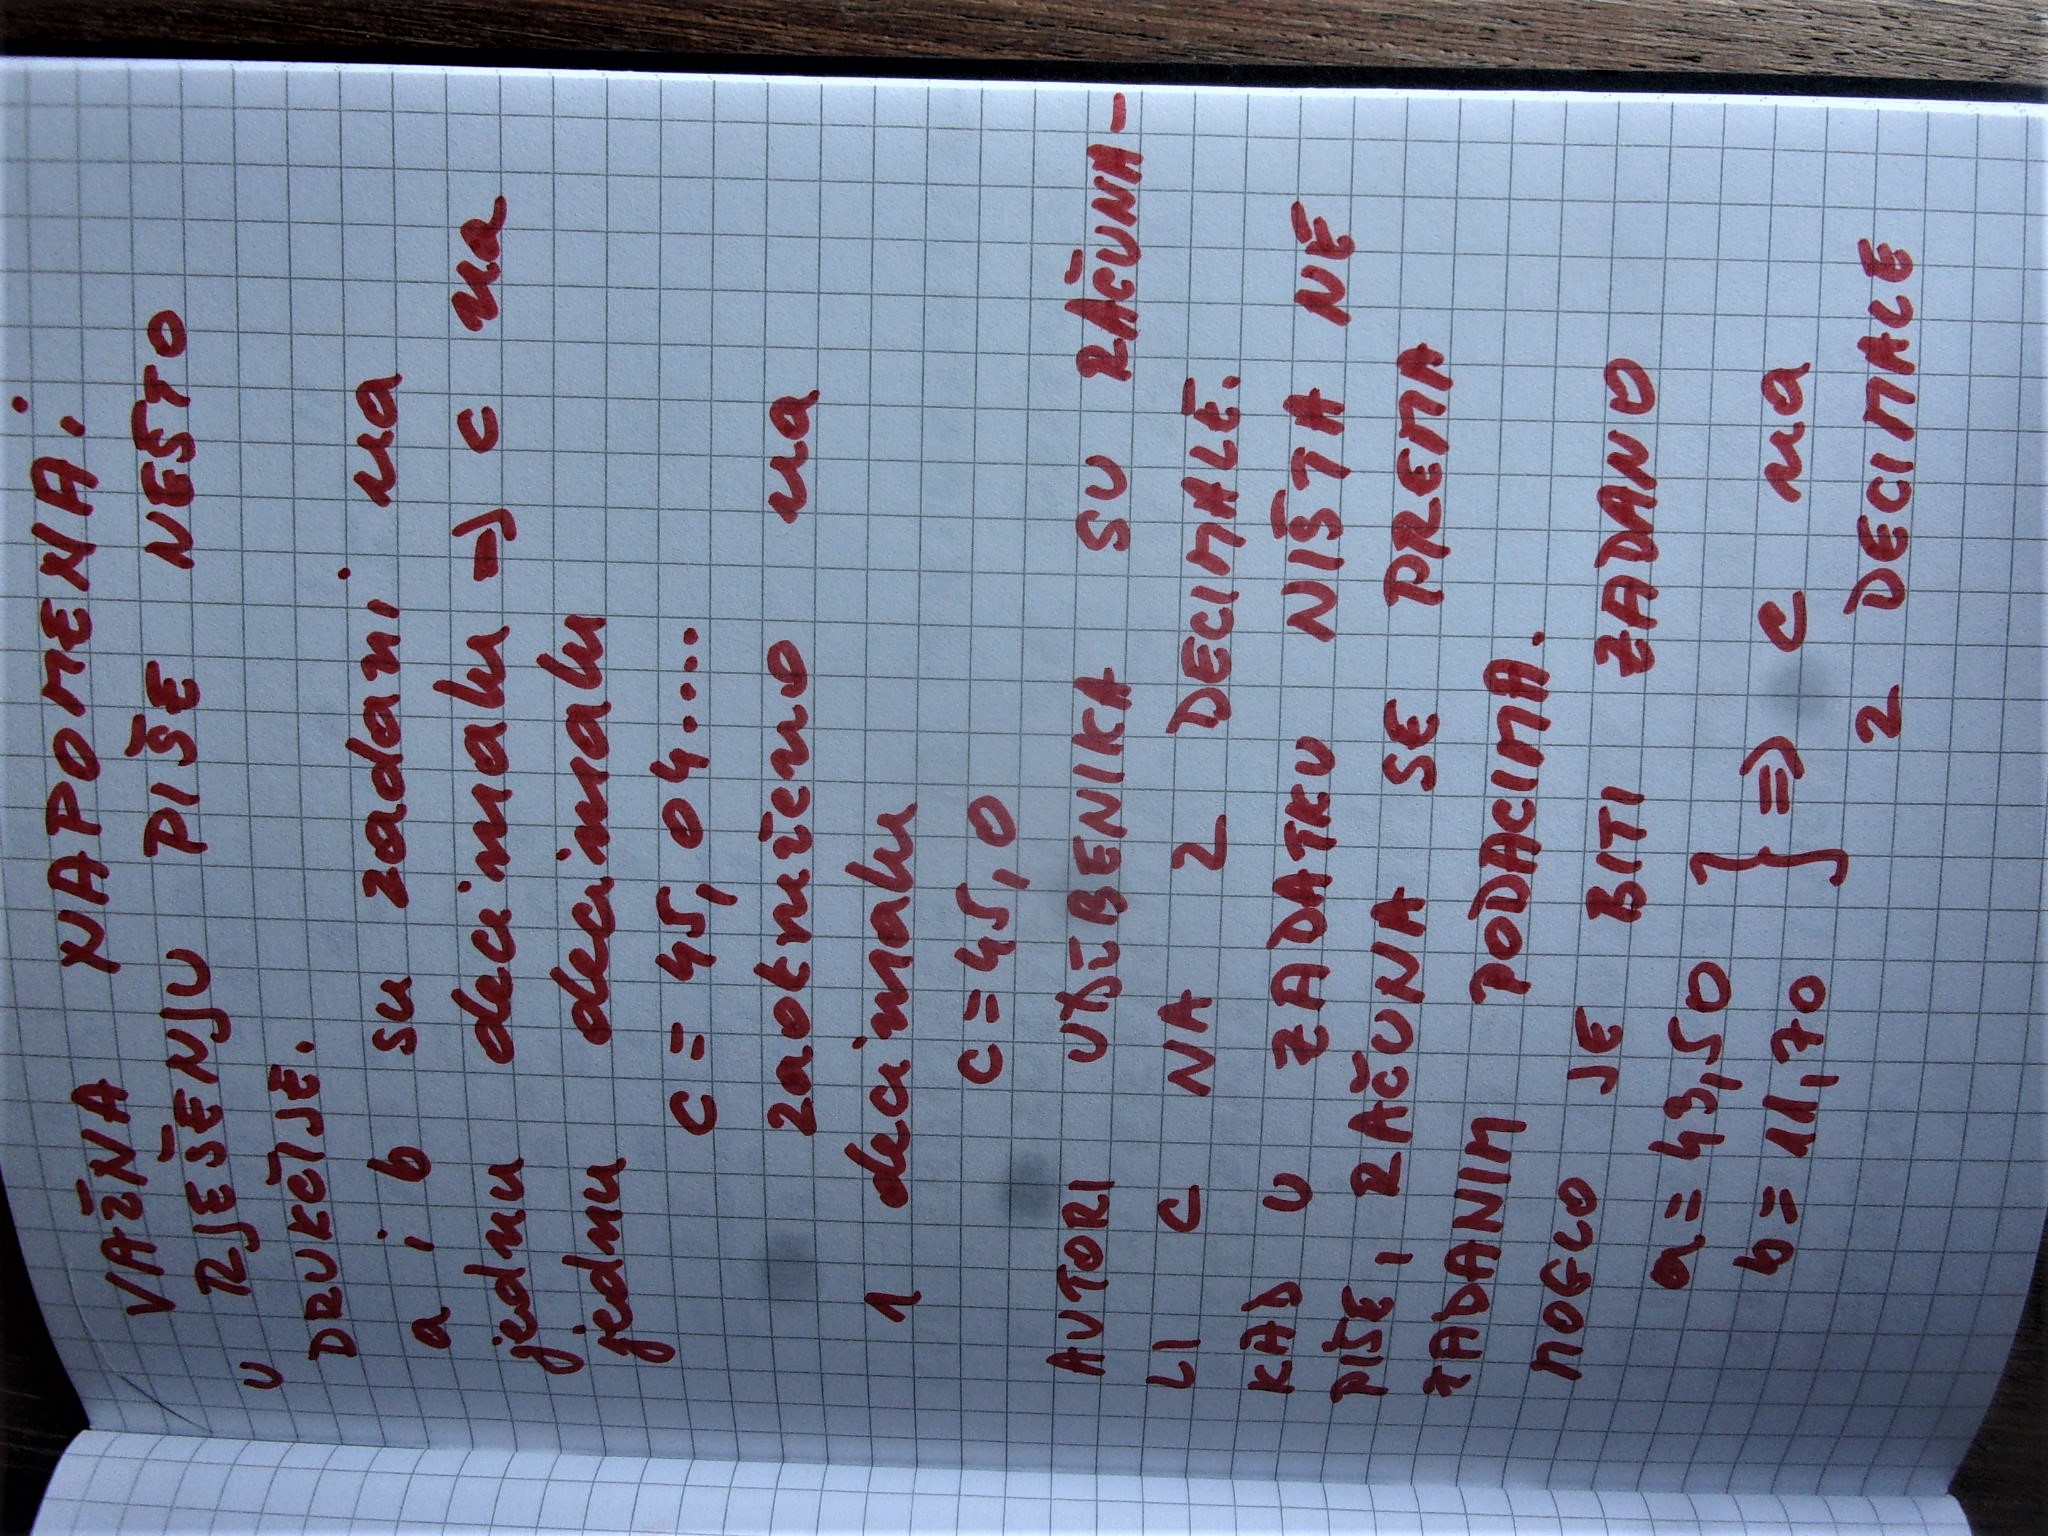 VAŽNA NAPOMENA:
U RJEŠENJU PIŠE NEŠTO
DRUKČIJE.
a i b su zadani na
jednu decimalu => c na
jednu decimalu
c = 45,04...
zaokruženo na
1 decimalu
c = 45,0
AUTORI UDŽBENIKA SU RAČUNA-
LI C NA 2 DECIMALE.
KAD U ZADATKU NIŠTA NE
PIŠE, RAČUNA SE PREMA
ZADANIM PODACIMA.
MOGLO JE BITI ZADANO
a = 43,50 } => c na
b = 11,70 2 DECIMALE